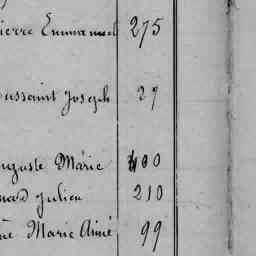 ierre Emmanuel 275
oussaint Joseph 29
uguste Marie 400
nard Julien 210
né Marie Aimé 99